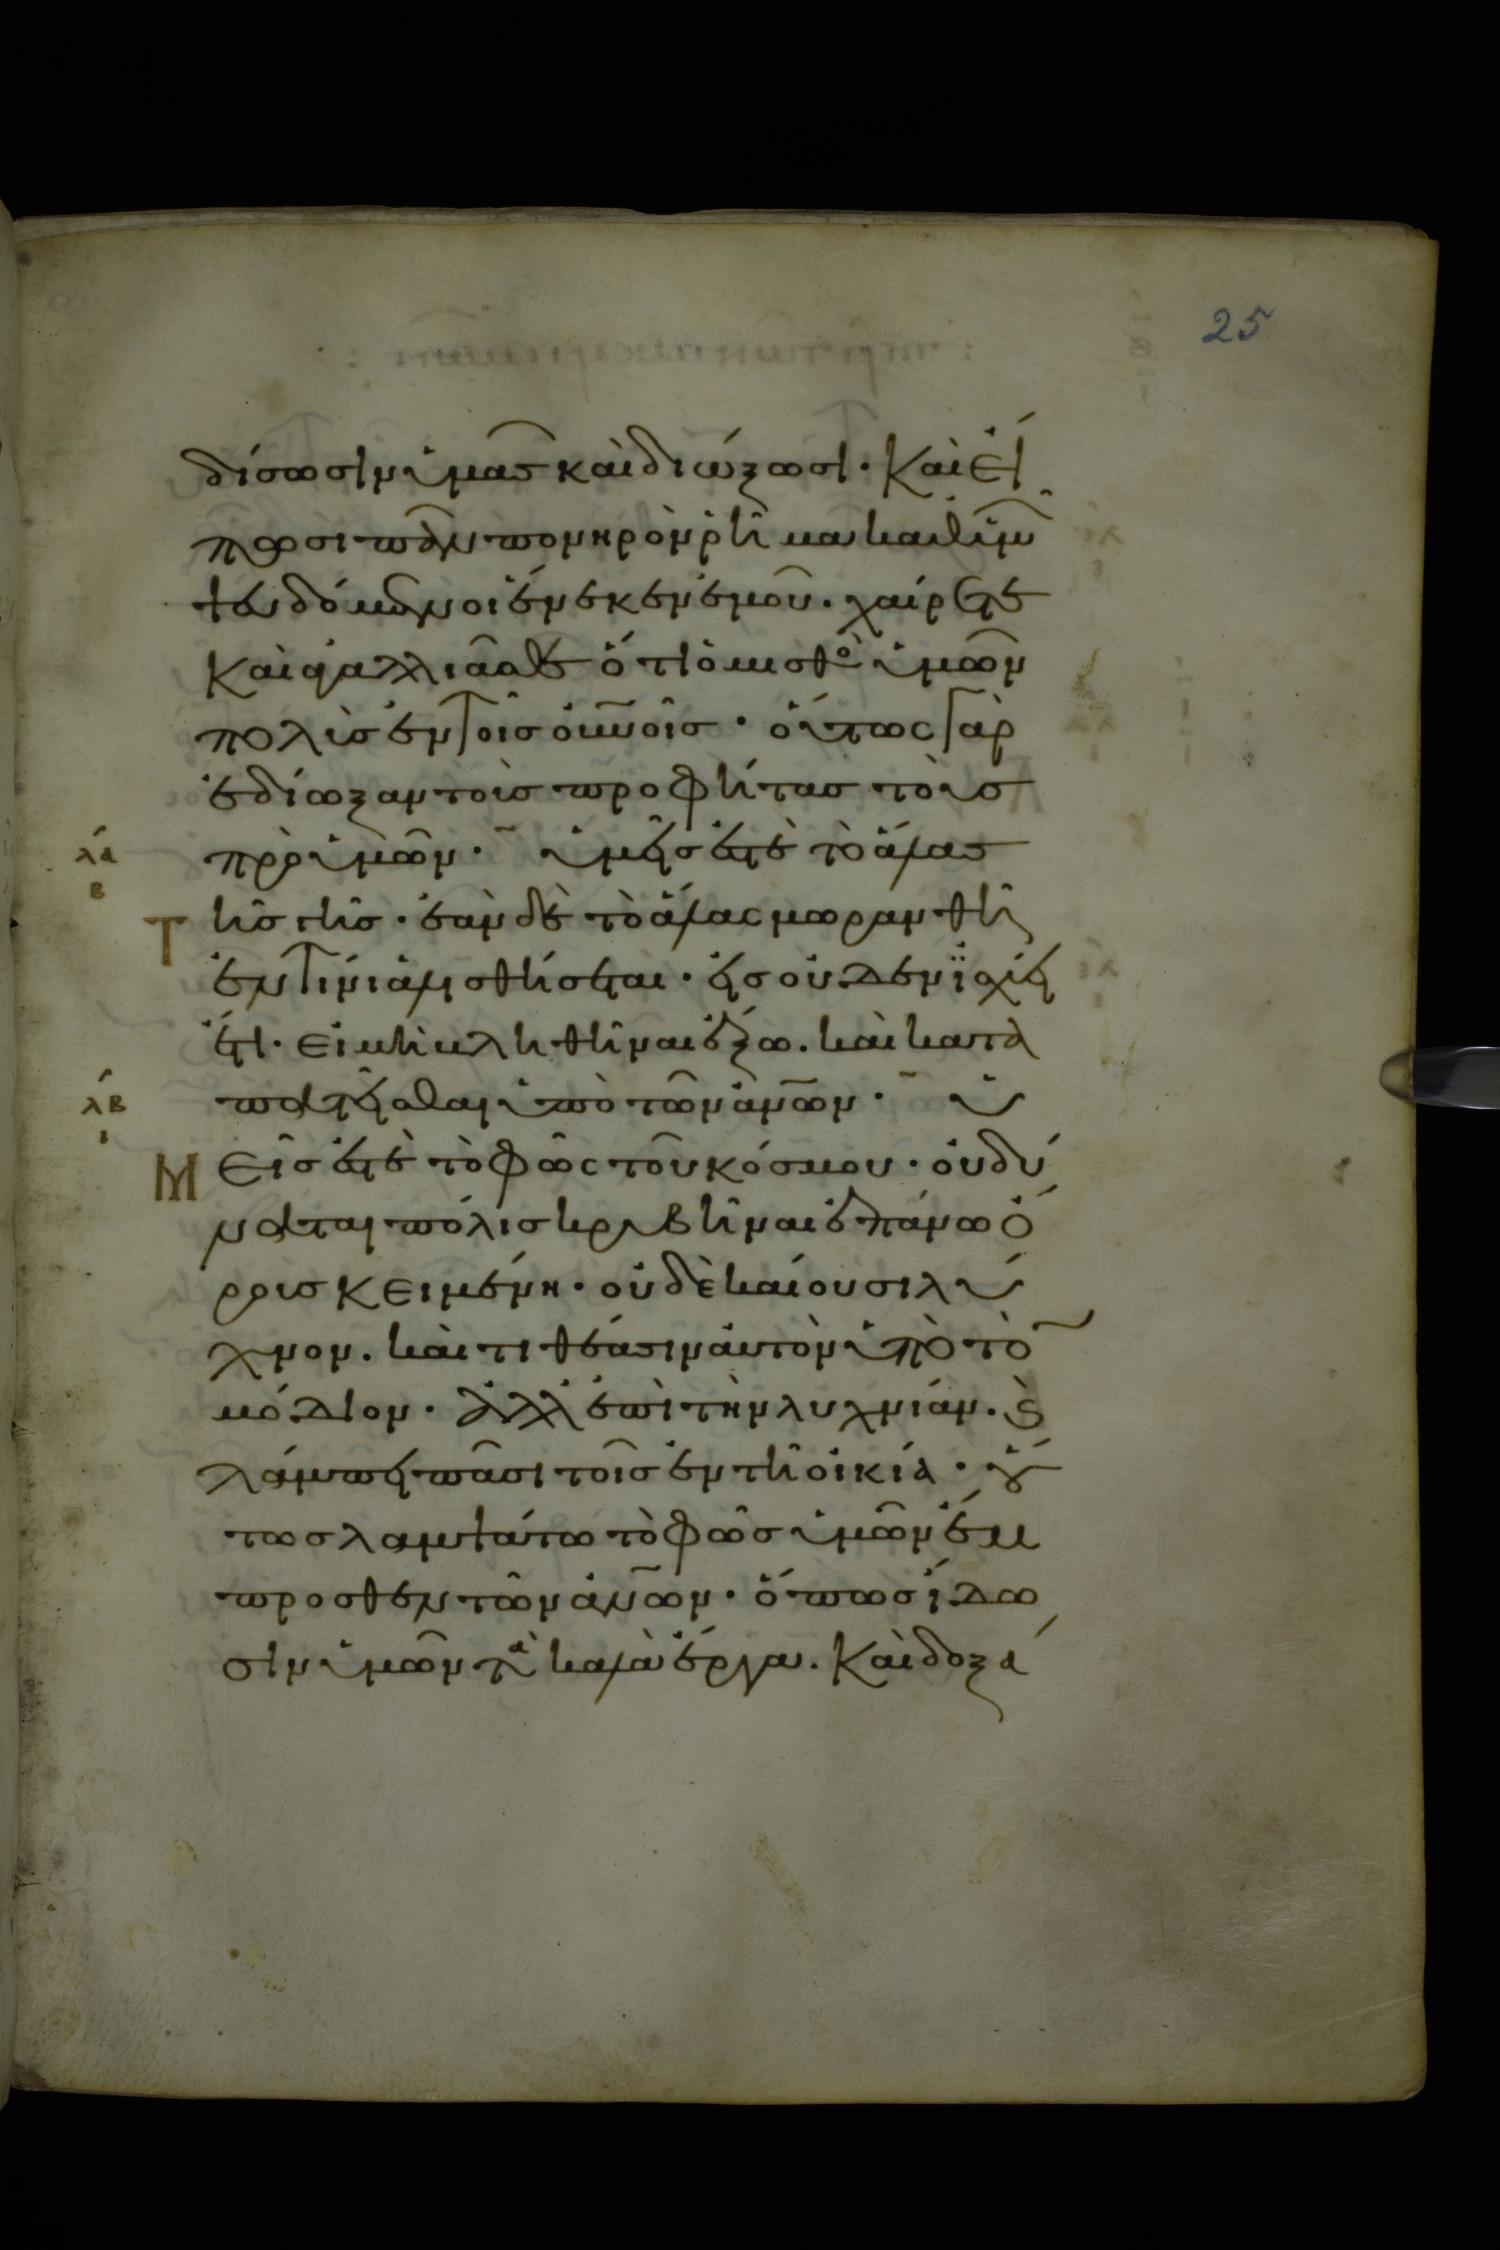 25
δίσωσιν ὑμᾶς καὶ διώξωσι· καὶ εἴ
πωσι πᾶν πονηρὸν ῥῆμα καθ ὑμῶ̑
ψευδόμενοι ἕνεκεν ἐμοῦ. χαίρετε
καὶ ἀγαλλιᾶσθε ὅτι ὁ μισθὸ ὑμῶν
πολὶς ἐν τοῖς οὐνοῖς· οὕτως γὰρ
ἐδίωξαν τοὶς προφήτας τοὺς
λα πρὸ ὑμῶν· ὑμεῖς ἐστὲ τὸ ἅλας
β
Τ ῆς γῆς· ἐὰν δὲ τὸ ἅλας μωρανθῆ
ἐν τίνι ἁλισθήσεται· εἰς οὐδὲν ἰσχύει
ἔτι· εἰ μὴ βληθῆναι ἔξω. καὶ κατα
λβ πατεῖσθαι ὑπὸ τῶν ἀνῶν· ὑ
ι
Μ εῖς ἐστὲ τὸ φῶς τοῦ κόσμου· οὐ δύ
ναται πόλις κρυβῆναι ἐπάνω ὄ
ρρις κειμένη· οὐδὲ καίουσι λύ
χνον. καὶ τιθέασιν αὐτὸν ὑπὸ τὸ
μόδιον· ἀλλ ἐπὶ τὴν λυχνίαν. ϗ
λάμπει πᾶσι τοῖς ἐν τῆ οἰκία· οὕ
τως λαμψάτω τὸ φῶς ὑμῶν ἔμ
προσθεν τῶν ἀνῶν· ὅπως ἴδω
σιν ὑμῶν τὰ καλὰ ἔργα. καὶ δοξά